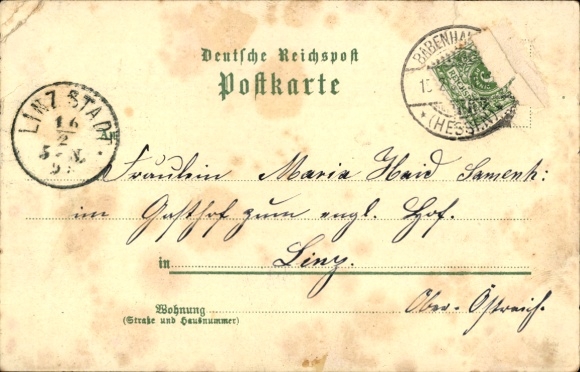 Deutsche Reichspost
Postkarte
BABENHAUSEN
* (HESSEN) *
LINZ STADT
16
2
Fräulein Maria Haid
im Gasthof zum engl. Hof.
in Linz.
Wohnung
(Straße und Hausnummer)
Ober-Östreich.